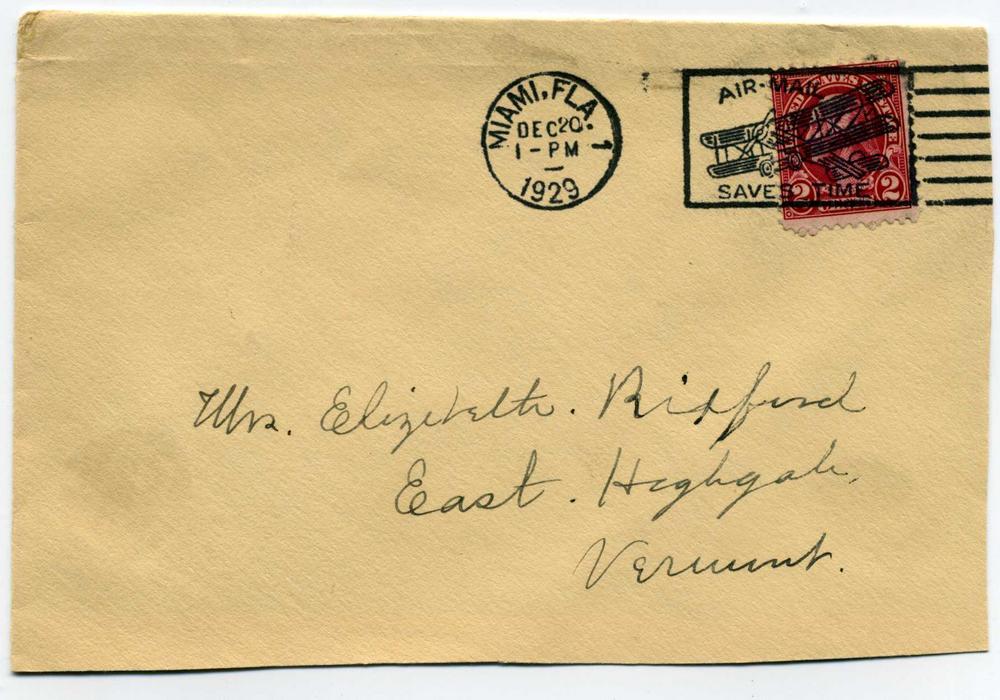 MIAMI, FLA. 1
DEC 20
1-PM
1929
AIR-MAIL
SAVES TIME
UNITED STATES POSTAGE
2 2
Mrs. Elizebelth. Bidford
East. Highgate,
Vermont.